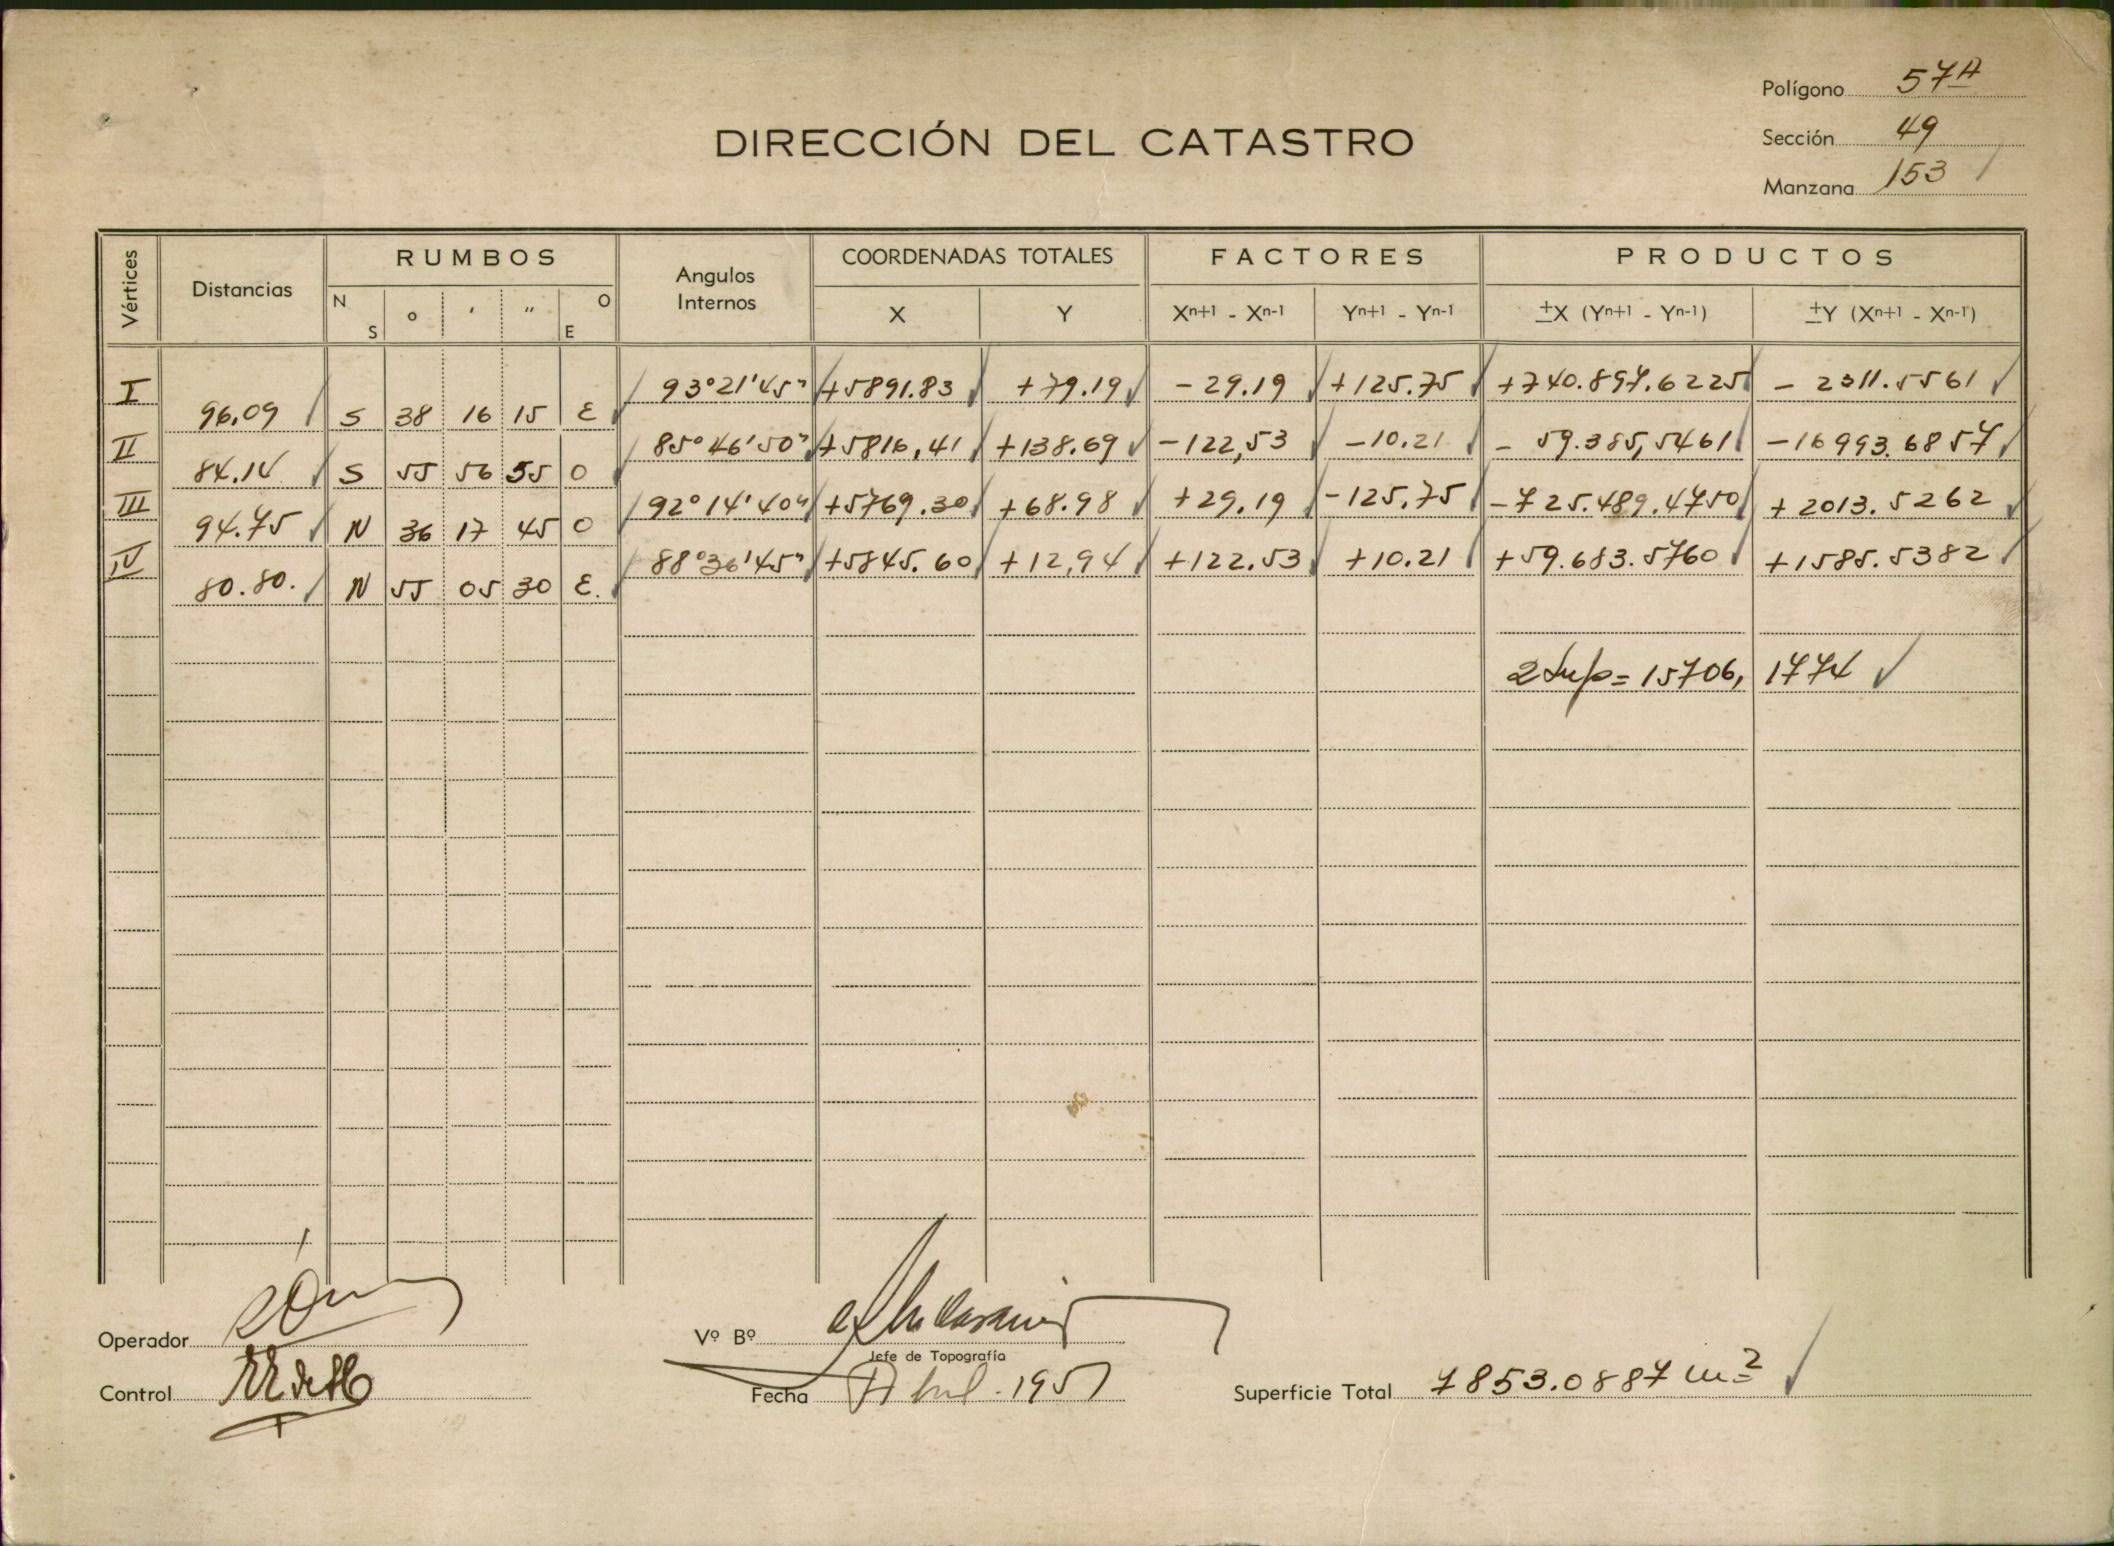 Polígono 57A
DIRECCIÓN DEL CATASTRO
Sección 49
Manzana 153
Vértices Distancias RUMBOS Angulos Internos COORDENADAS TOTALES FACTORES PRODUCTOS
N S o ' " O E X Y Xn+1 - Xn-1 Yn+1 - Yn-1 ±X (Yn+1 - Yn-1) ±Y (Xn+1 - Xn-1)
I 93°21'45" +5891.83 +79.19 -29.19 +125.75 +740.897.6225 - 2311.5561
96.09 S 38 16 15 E
II 85°46'50" +5816,41 +138.69 -122,53 -10.21 - 59.385,5461 -16993.6857
84.14 S 55 56 55 O
III 92°14'40" +5769.30 +68.98 +29.19 -125.75 -725.489.4750 +2013.5262
94.75 N 36 17 45 O
IV 88°36'45" +5845.60 +12,94 +122.53 +10.21 +59.683.5760 +1585.5382
80.80. N 55 05 30 E.
2 Sup = 15706, 1774
Operador
Vº Bº
Jefe de Topografía
Control
Fecha Abril - 1951
Superficie Total 7853.0887 m2